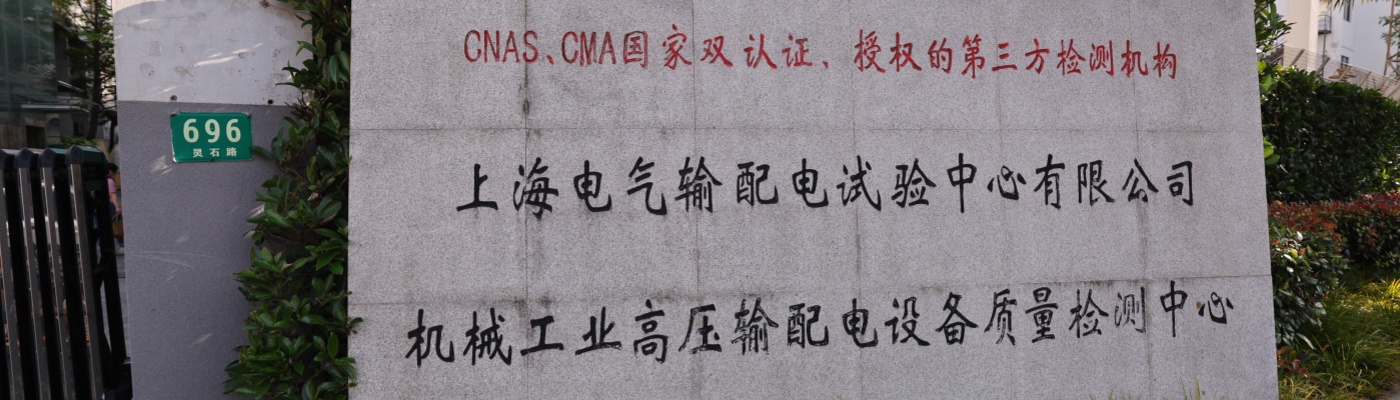 696
灵石路
CNAS、CMA国家双认证、授权的第三方检测机构
上海电气输配电试验中心有限公司
机械工业高压输配电设备质量检测中心